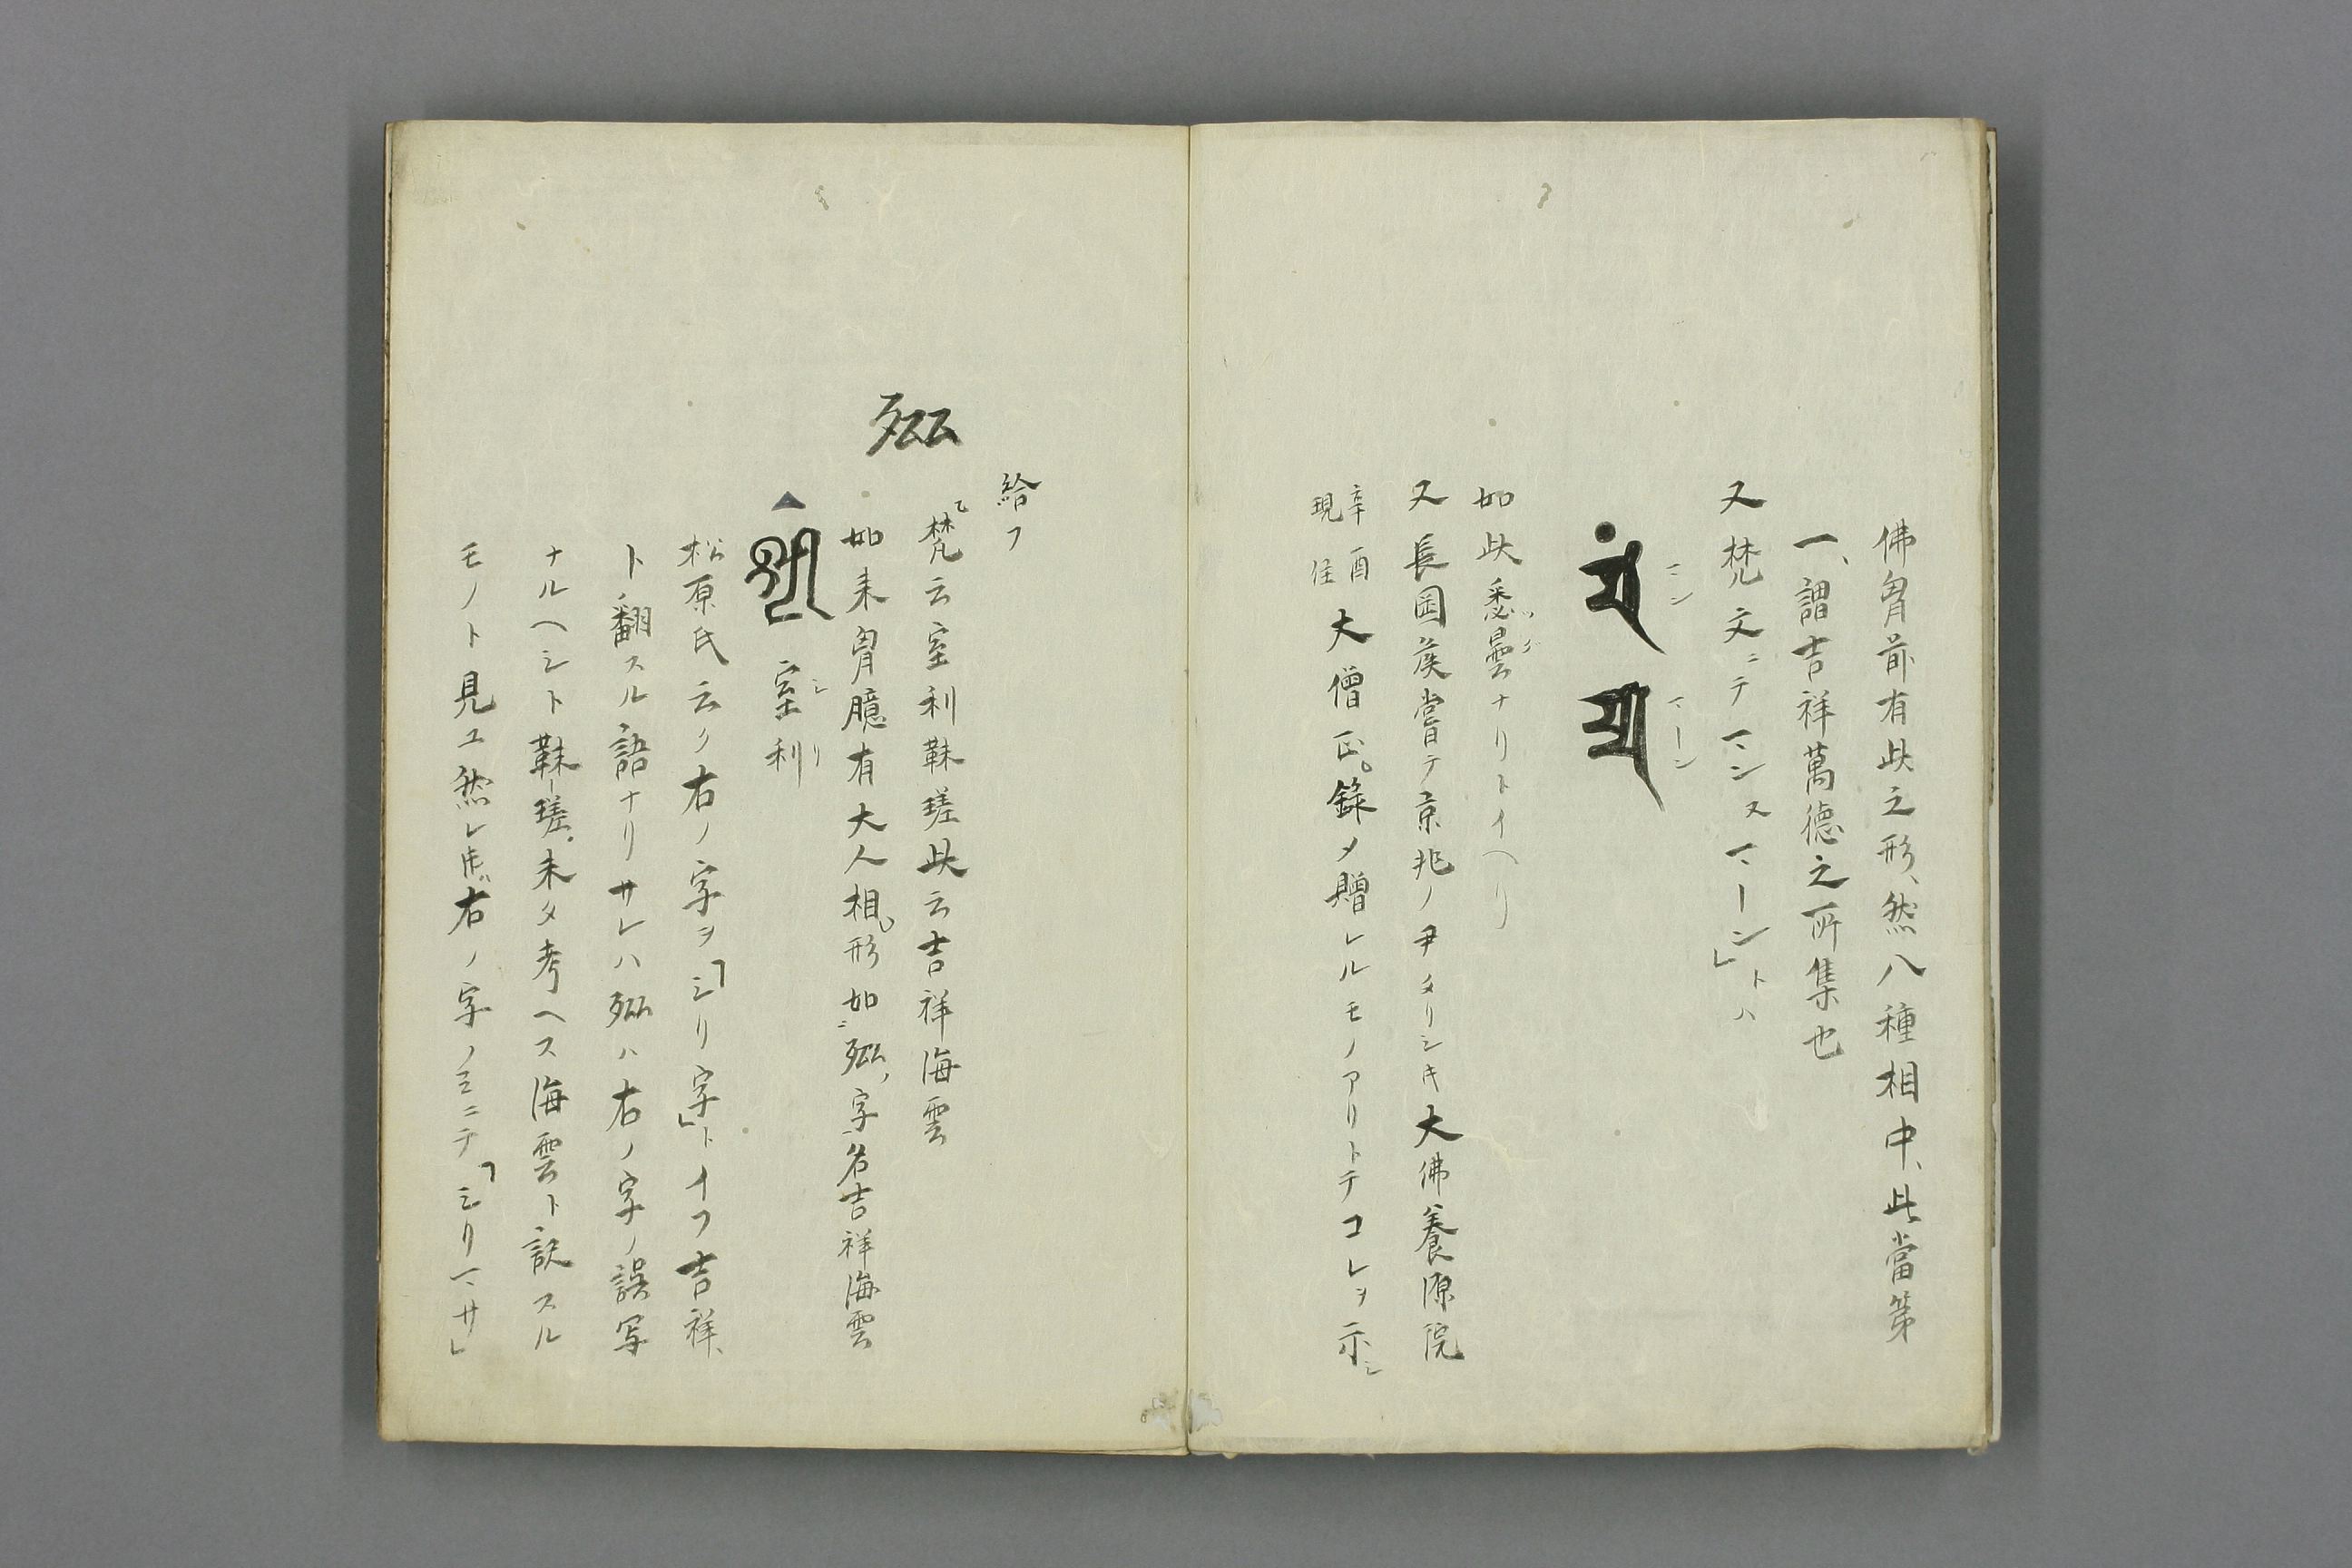 佛胷前有此之形、然八種相中、此當第
一、謂吉祥萬德之所集也
又梵文ニテマンヌマーン」トハ
マン マーン
如此悉曇ナリトイヘリ
シツ タン
又長岡侯嘗テ京兆ノ尹タリシキ大佛養源院
辛酉
現住
大僧正錄メ贈レルモノアリトテコレヲ示シ
給フ
梵云室利靺瑳此云吉祥海雲
如来胷臆有大人相形如𠃵字名吉祥海雲
室利
シリ
松原氏云ク右ノ字ヲ「シリ字」トイフ吉祥、
ト翻スル語ナリサレハ ハ右ノ字ノ誤写
ナルヘシト靺瑳未タ考ヘス海雲ト訳スル
モノト見ユ然レ𪜈右ノ字ノミニテ「シリマサ」